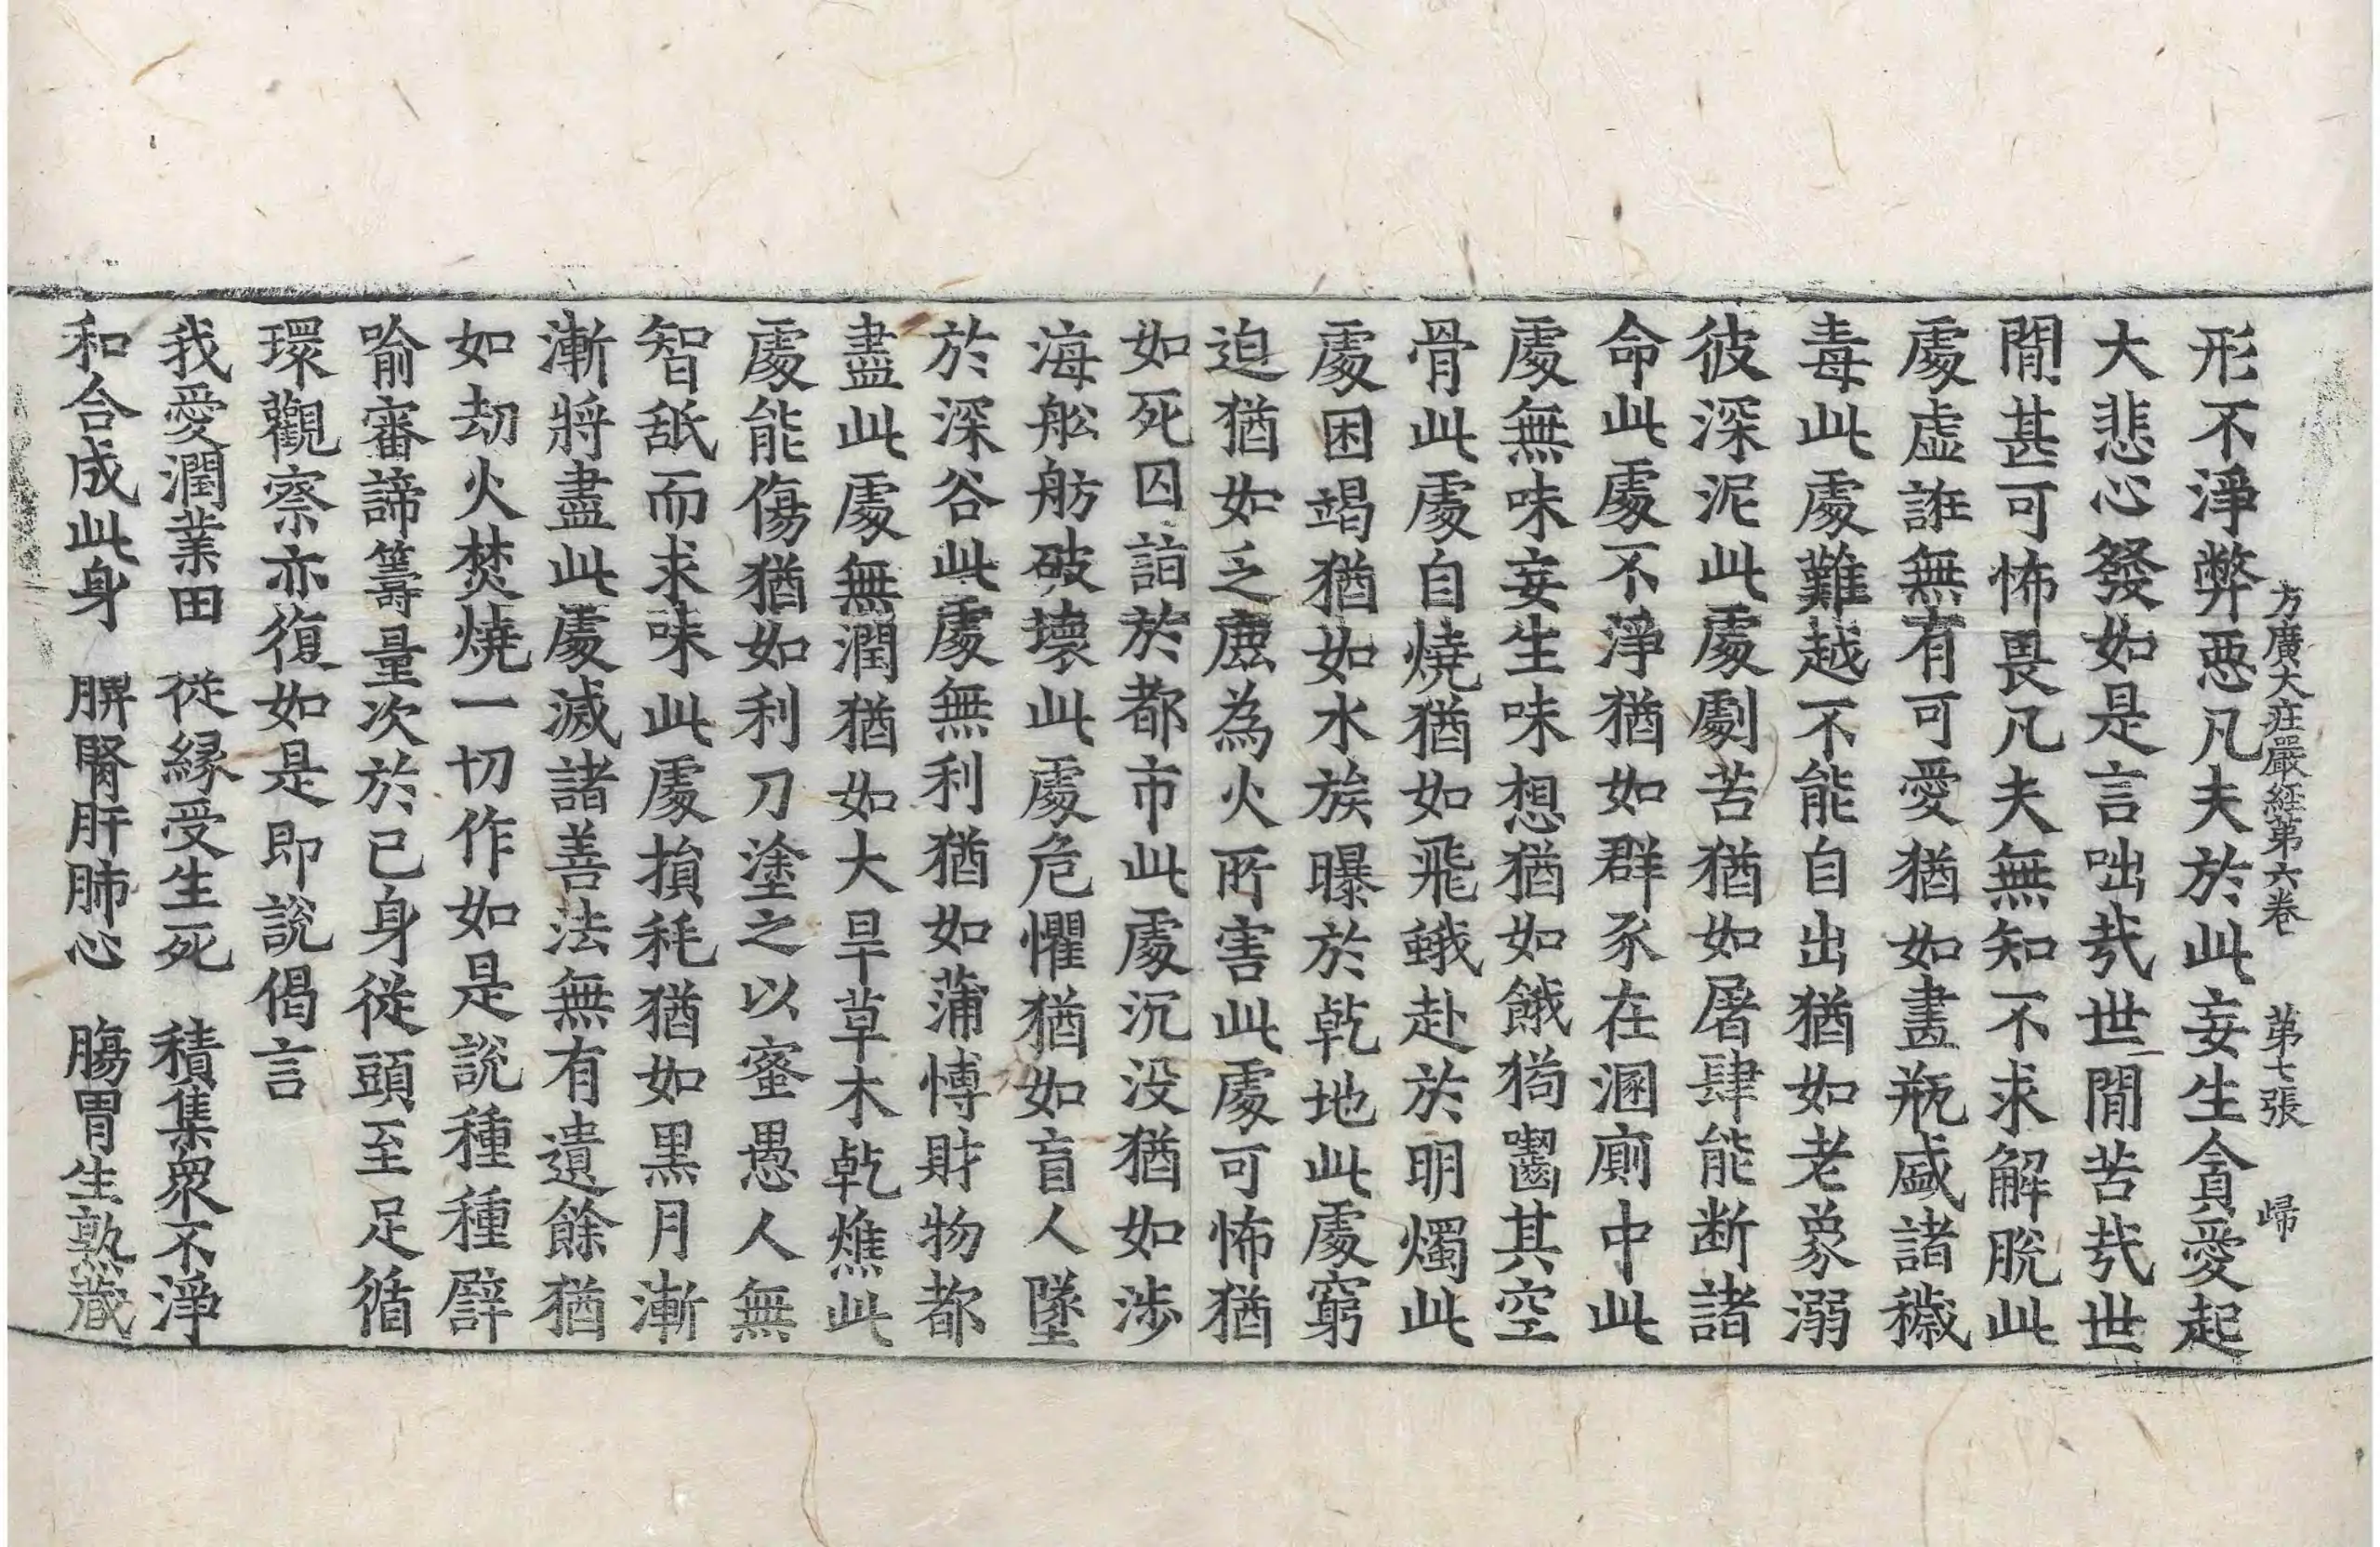 方廣大莊嚴經第六卷 第七張 歸
形不淨弊惡凡夫於此妄生貪愛起
大悲心發如是言咄哉世閒苦哉世
閒甚可怖畏凡夫無知不求解脫此
處虛誑無有可愛猶如畫瓶盛諸穢
毒此處難越不能自出猶如老象溺
彼深泥此處劇苦猶如屠肆能断諸
命此處不淨猶如群豕在溷廁中此
處無味妄生味想猶如餓狗嚙其空
骨此處自燒猶如飛蛾赴於明燭此
處困竭猶如水族曝於乾地此處窮
迫猶如乏鹿為火所害此處可怖猶
如死囚詣於都市此處沉没猶如涉
海舩舫破壞此處危懼猶如盲人墜
於深谷此處無利猶如蒲博財物都
盡此處無潤猶如大旱草木乾燋此
處能傷猶如利刀塗之以蜜愚人無
智舐而求味此處損耗猶如黒月漸
漸將盡此處滅諸善法無有遺餘猶
如劫火焚燒一切作如是說種種譬
喻審諦籌量次於己身從頭至足循
環觀察亦復如是即說偈言
我愛潤業田 從緣受生死 積集眾不淨
和合成此身 脾腎肝肺心 腸胃生熟藏